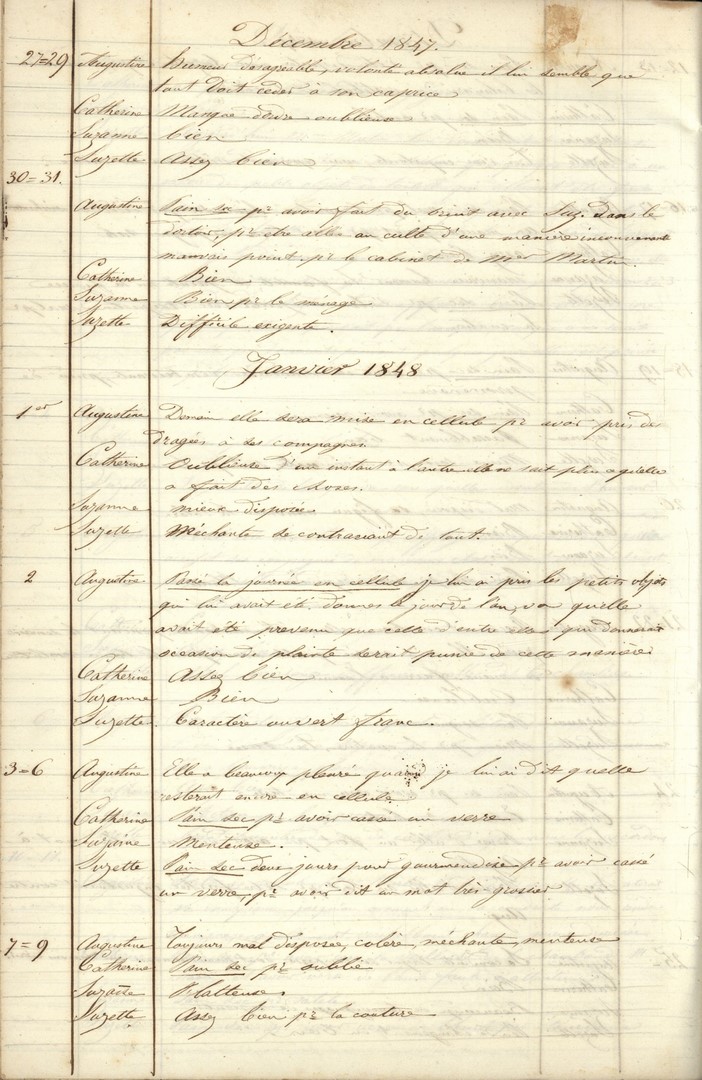 Décembre 1847.
27=29 Augustine humeur désagréable, volonté absolue il lui semble que
tout doit céder à son caprice
Catherine Manque d'être oublieuse
Suzanne bien
Suzette Assez bien
30=31.
Augustine Pain sec pr avoir fait du bruit avec Suz. dans le
dortoir, pr etre allée au culte d'une manière inconvenante
mauvais point pr le cabinet de Mer Martin.
Catherine Bien
Suzanne Bien pr le ménage
Suzette Difficile exigente.
Janvier 1848
1er Augustine Demain elle sera mise en cellule pr avoir pris des
dragées à ses compagnes
Catherine Oublieuse d'une instant à l'autre elle ne sait plus quelle
a fait des choses.
Suzanne mieux disposée
Suzette Méchante se contrariant de tout.
2 Augustine Passé la journée en cellule je lui ai pris les petits objets
qui lui avait été donnés le jour de l'an, vu quelle
avait été prevenu que celle d'entre elles qui donnerait
occasion de plainte serait punie de cette manière
Catherine Assez bien
Suzanne Bien
Suzette Caractère ouvert franc.
3=6 Augustine Elle a beaucoup pleuré quand je lui ai dit quelle
resterait encore en cellule.
Catherine Pain sec pr avoir cassé un verre
Suzanne Menteuse.
Suzette Pain sec deux jours pour gourmendise pr avoir cassé
un verre, pr avoir dit un mot très grossier
7=9 Augustine Toujours mal disposée, colère, méchante, menteuse
Catherine Pain sec pr oublié
Suzanne Flatteuse.
Suzette Assez bien pr la couture